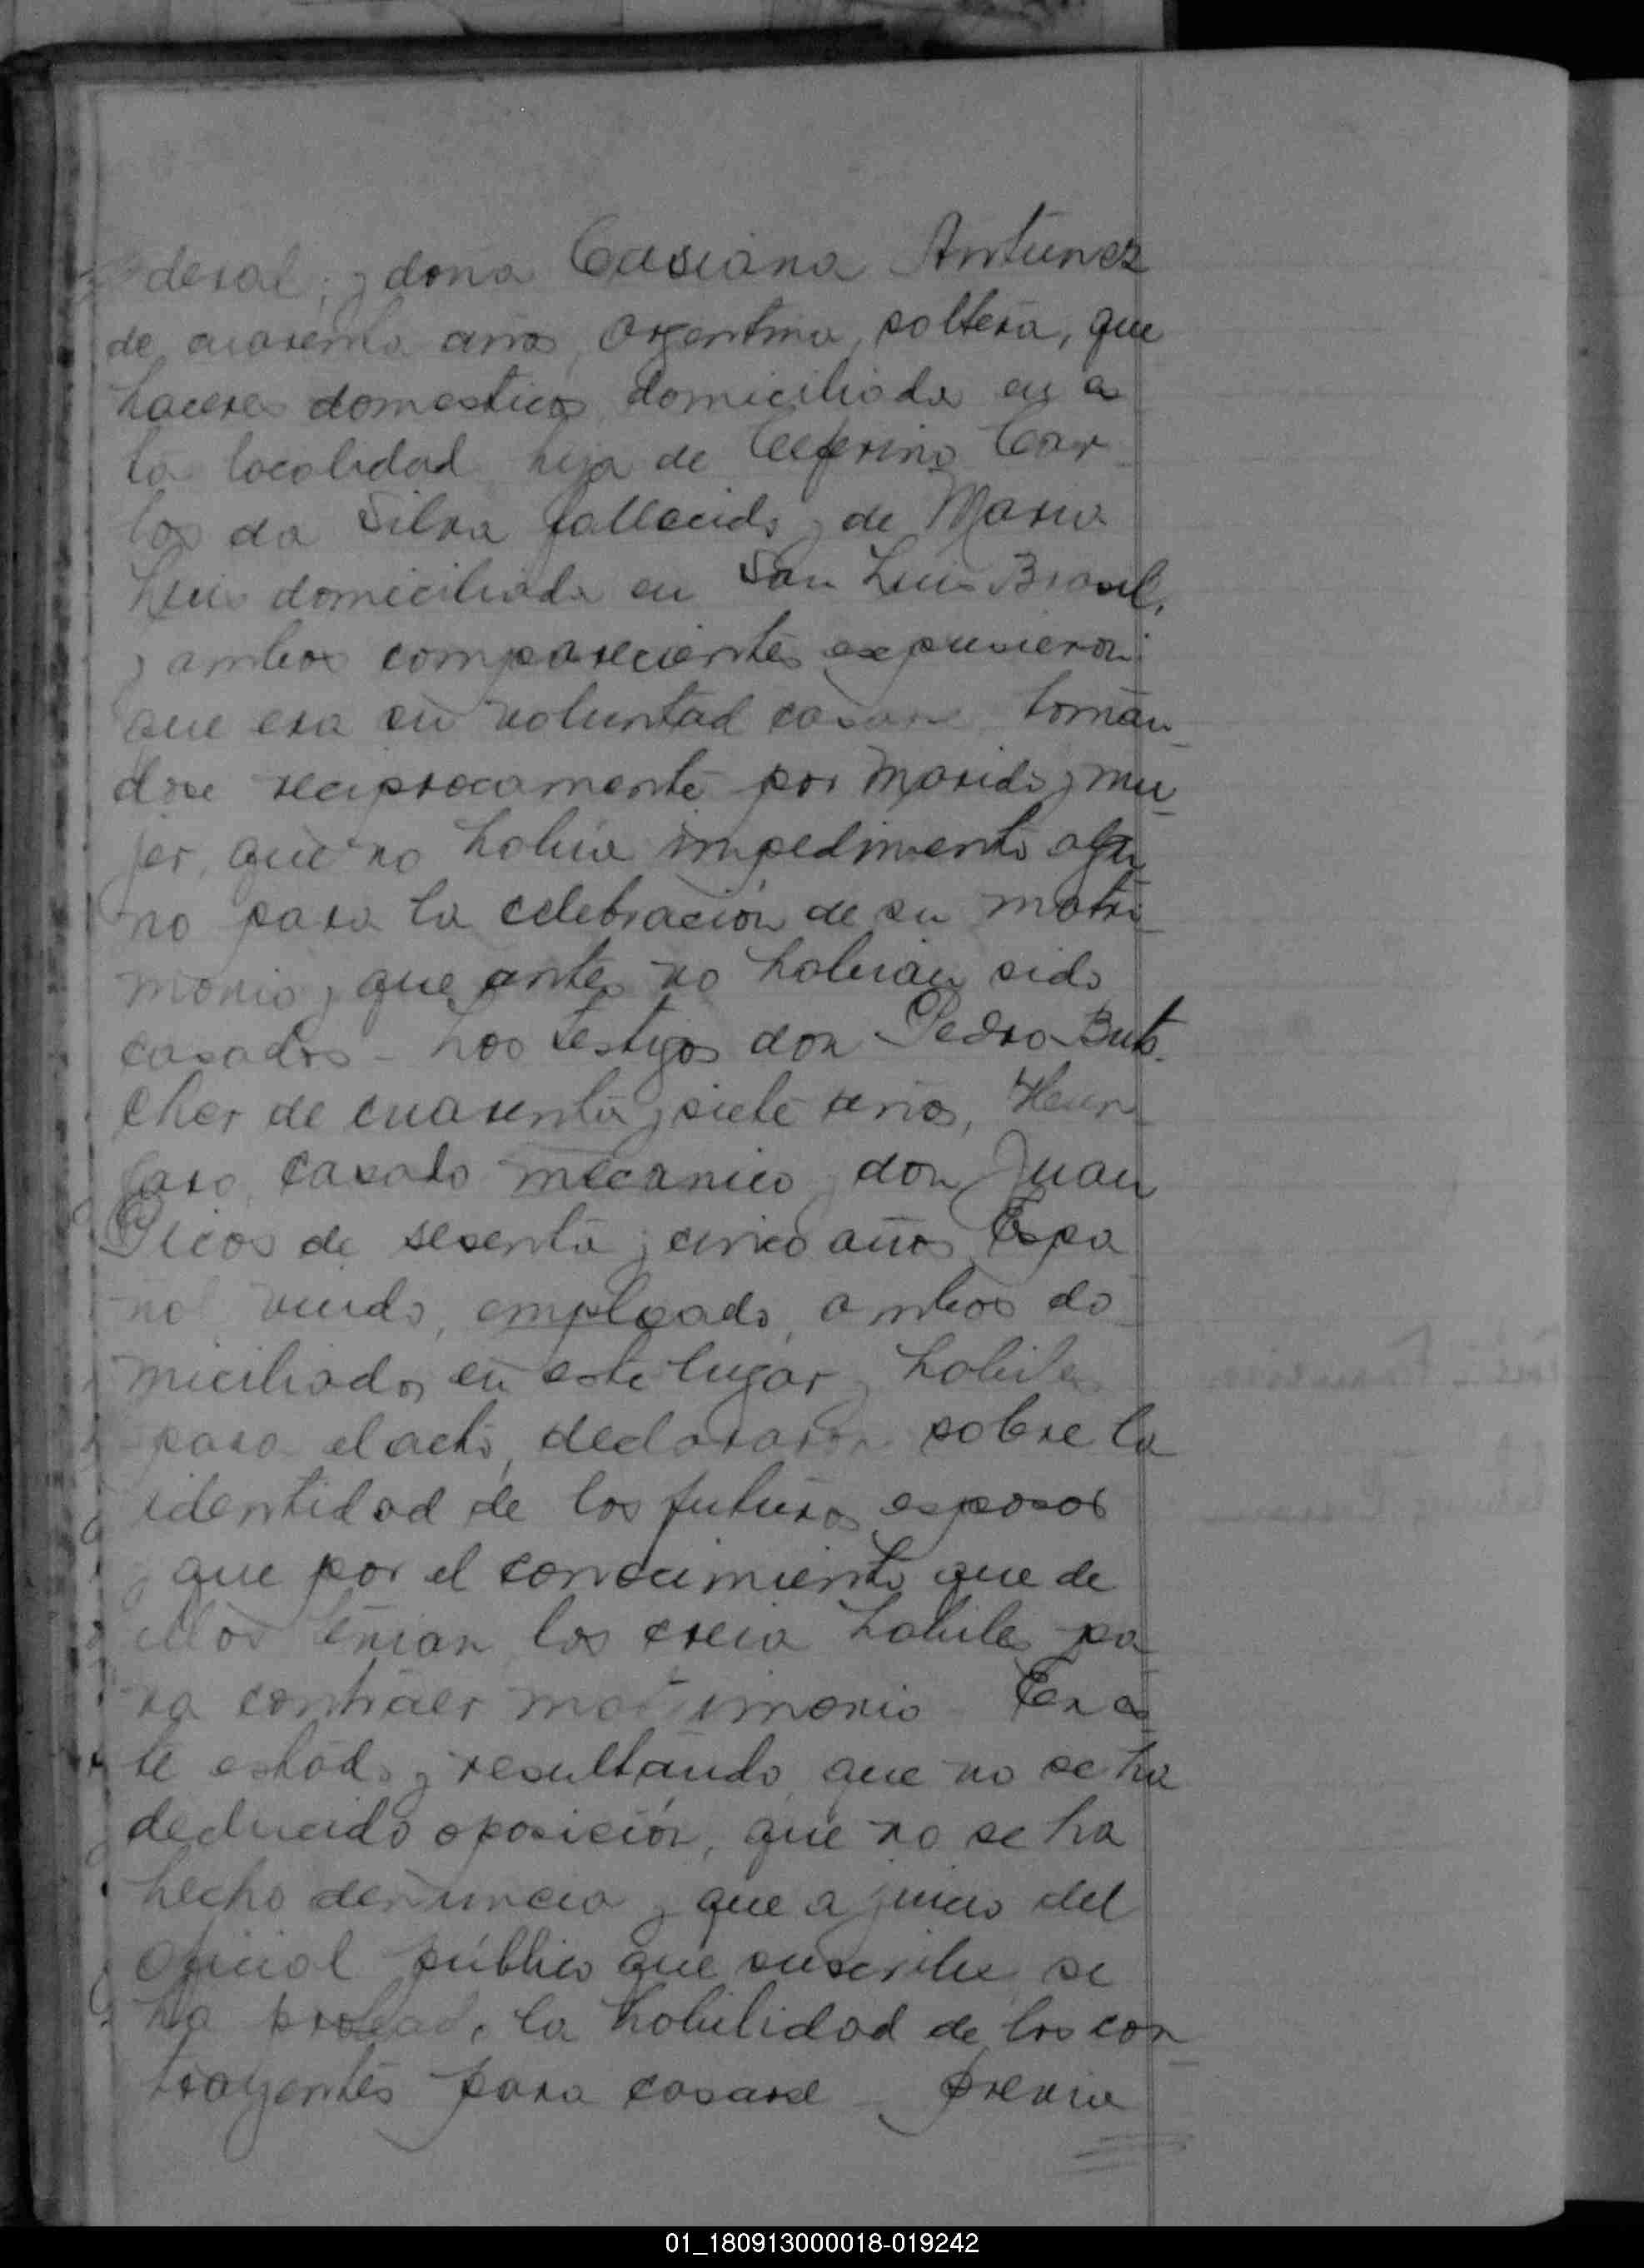 deral; y dona Casiana Antunez
de cuarenta años, Argentina, soltera, que
haceres domesticos domiciliada en es
ta localidad hija de Ceferino Car
los da Silva fallecido y de Maria
Luis domiciliada en San Luis Brasil,
y ambos comparecientes expusieron:
que era su voluntad casarse toman
dose reciprocamente por marido y mu
jer, que no habia impedimento algu
no para la celebración de su matri
monio y que antes no habian sido
casados - Los testigos don Pedro But
cher de cuarenta y siete años, Hun
garo, casado mecanico y don Juan
Picos de sesenta y cinco años Espa
ñol viudo, empleado, ambos do
miciliados en este lugar y habiles
para el acto, declararon sobre la
identidad de los futuros esposos
y que por el conocimiento que de
ellos tenian los creia habiles pa
ra contraer matrimonio - En es
te estado y resultando que no se ha
deducido oposición, que no se ha
hecho denuncia y que a juicio del
oficial público que suscribe se
ha probado la habilidad de los con
trayentes para casarse - previa
01_180913000018-019242